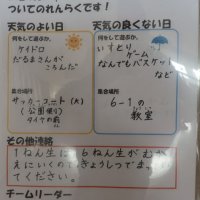 ついてのれんらくです！
天気のよい日
天気の良くない日
何をして遊ぶか。
ケイドロ
だるまさんが
ころんだ
集合場所
サッカーコート(大)
(公園側)
タイヤの前
何をして遊ぶか。
いすとりゲーム
なんでもバスケット
など
集合場所
6-1の
教室
その他連絡
1ねん生が6ねん生がむか
えにいくので、きょうしつでまっ
てください。
チームリーダー